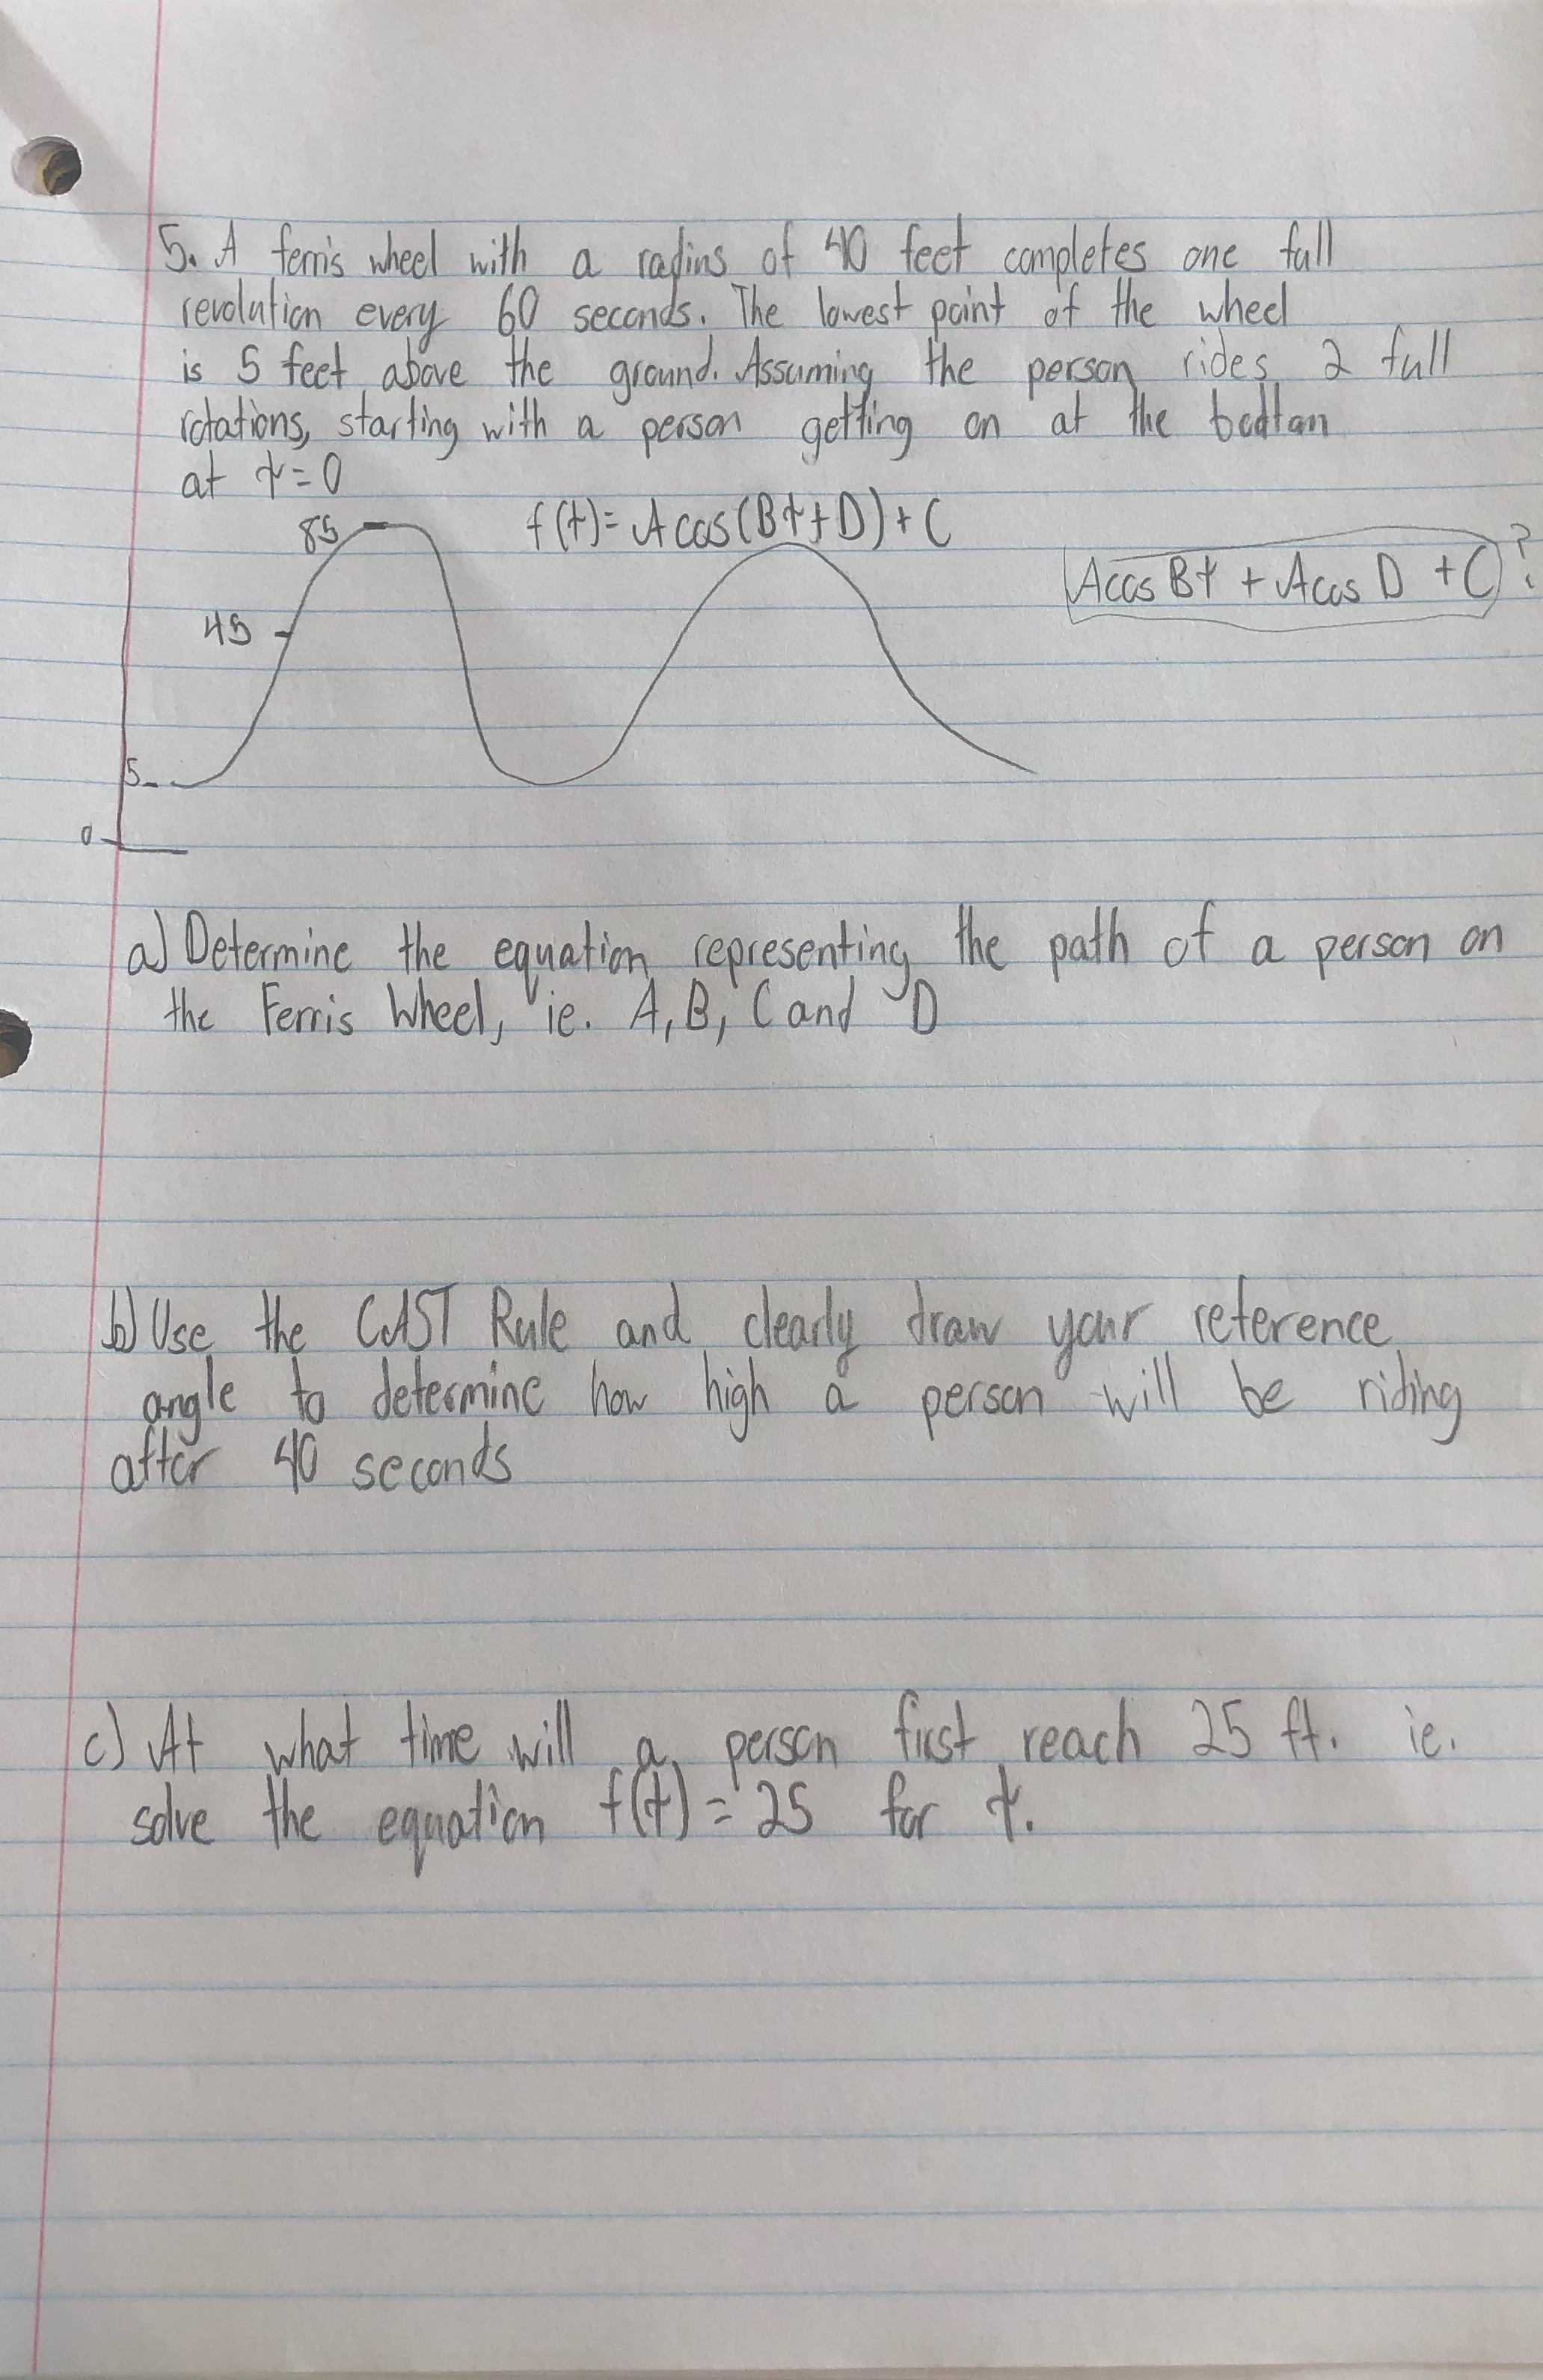 5. A ferris wheel with a radius of 40 feet completes one full
revolution every 60 seconds. The lowest point of the wheel
is 5 feet above the ground. Assuming the person rides 2 full
rotations, starting with a person getting on at the bottom
at t=0
f(t)= A cos(Bt+D)+C
A cos Bt + A cos D + C ?
85
45
5
0
a) Determine the equation representing the path of a person on
the Ferris Wheel, ie. A, B, C and D
b) Use the CAST Rule and clearly draw your reference
angle to determine how high a person will be riding
after 40 seconds
c) At what time will a person first reach 25 ft. ie.
solve the equation f(t)=25 for t.